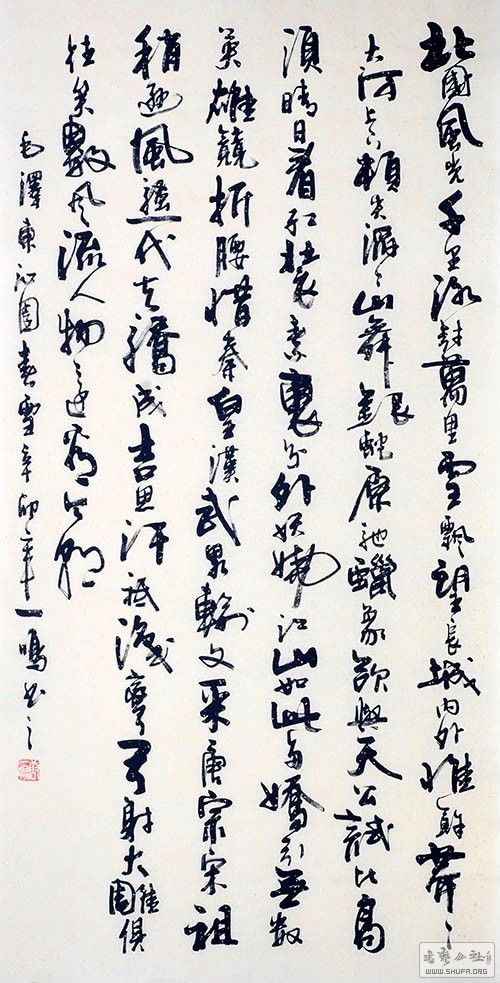 北國風光千里冰封萬里雪飄望長城內外惟餘莽〻
大河上下頓失滔〻山舞銀蛇原馳蠟象欲與天公試比高
須晴日看紅裝素裹分外妖嬈江山如此多嬌引無數
英雄競折腰惜秦皇漢武略輸文采唐宗宋祖
稍遜風騷一代天驕成吉思汗祇識彎弓射大雕俱
往矣數風流人物還看今朝
毛澤東沁園春雪辛卯年一鳴書之
書藝公社
WWW.SHUFA.ORG